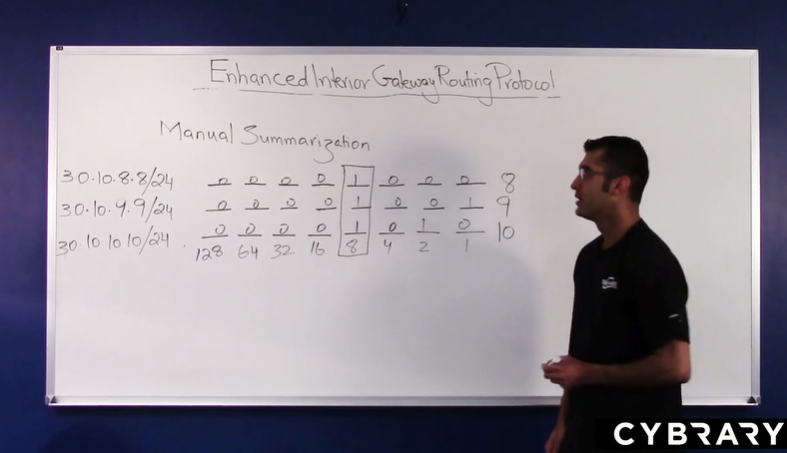 Enhanced Interior Gateway Routing Protocol
Manual Summarization
30.10.8.8/24 0 0 0 0 1 0 0 0 8
30.10.9.9/24 0 0 0 0 1 0 0 1 9
30.10.10.10/24 0 0 0 0 1 0 1 0 10
128 64 32 16 8 4 2 1
CYBRARY